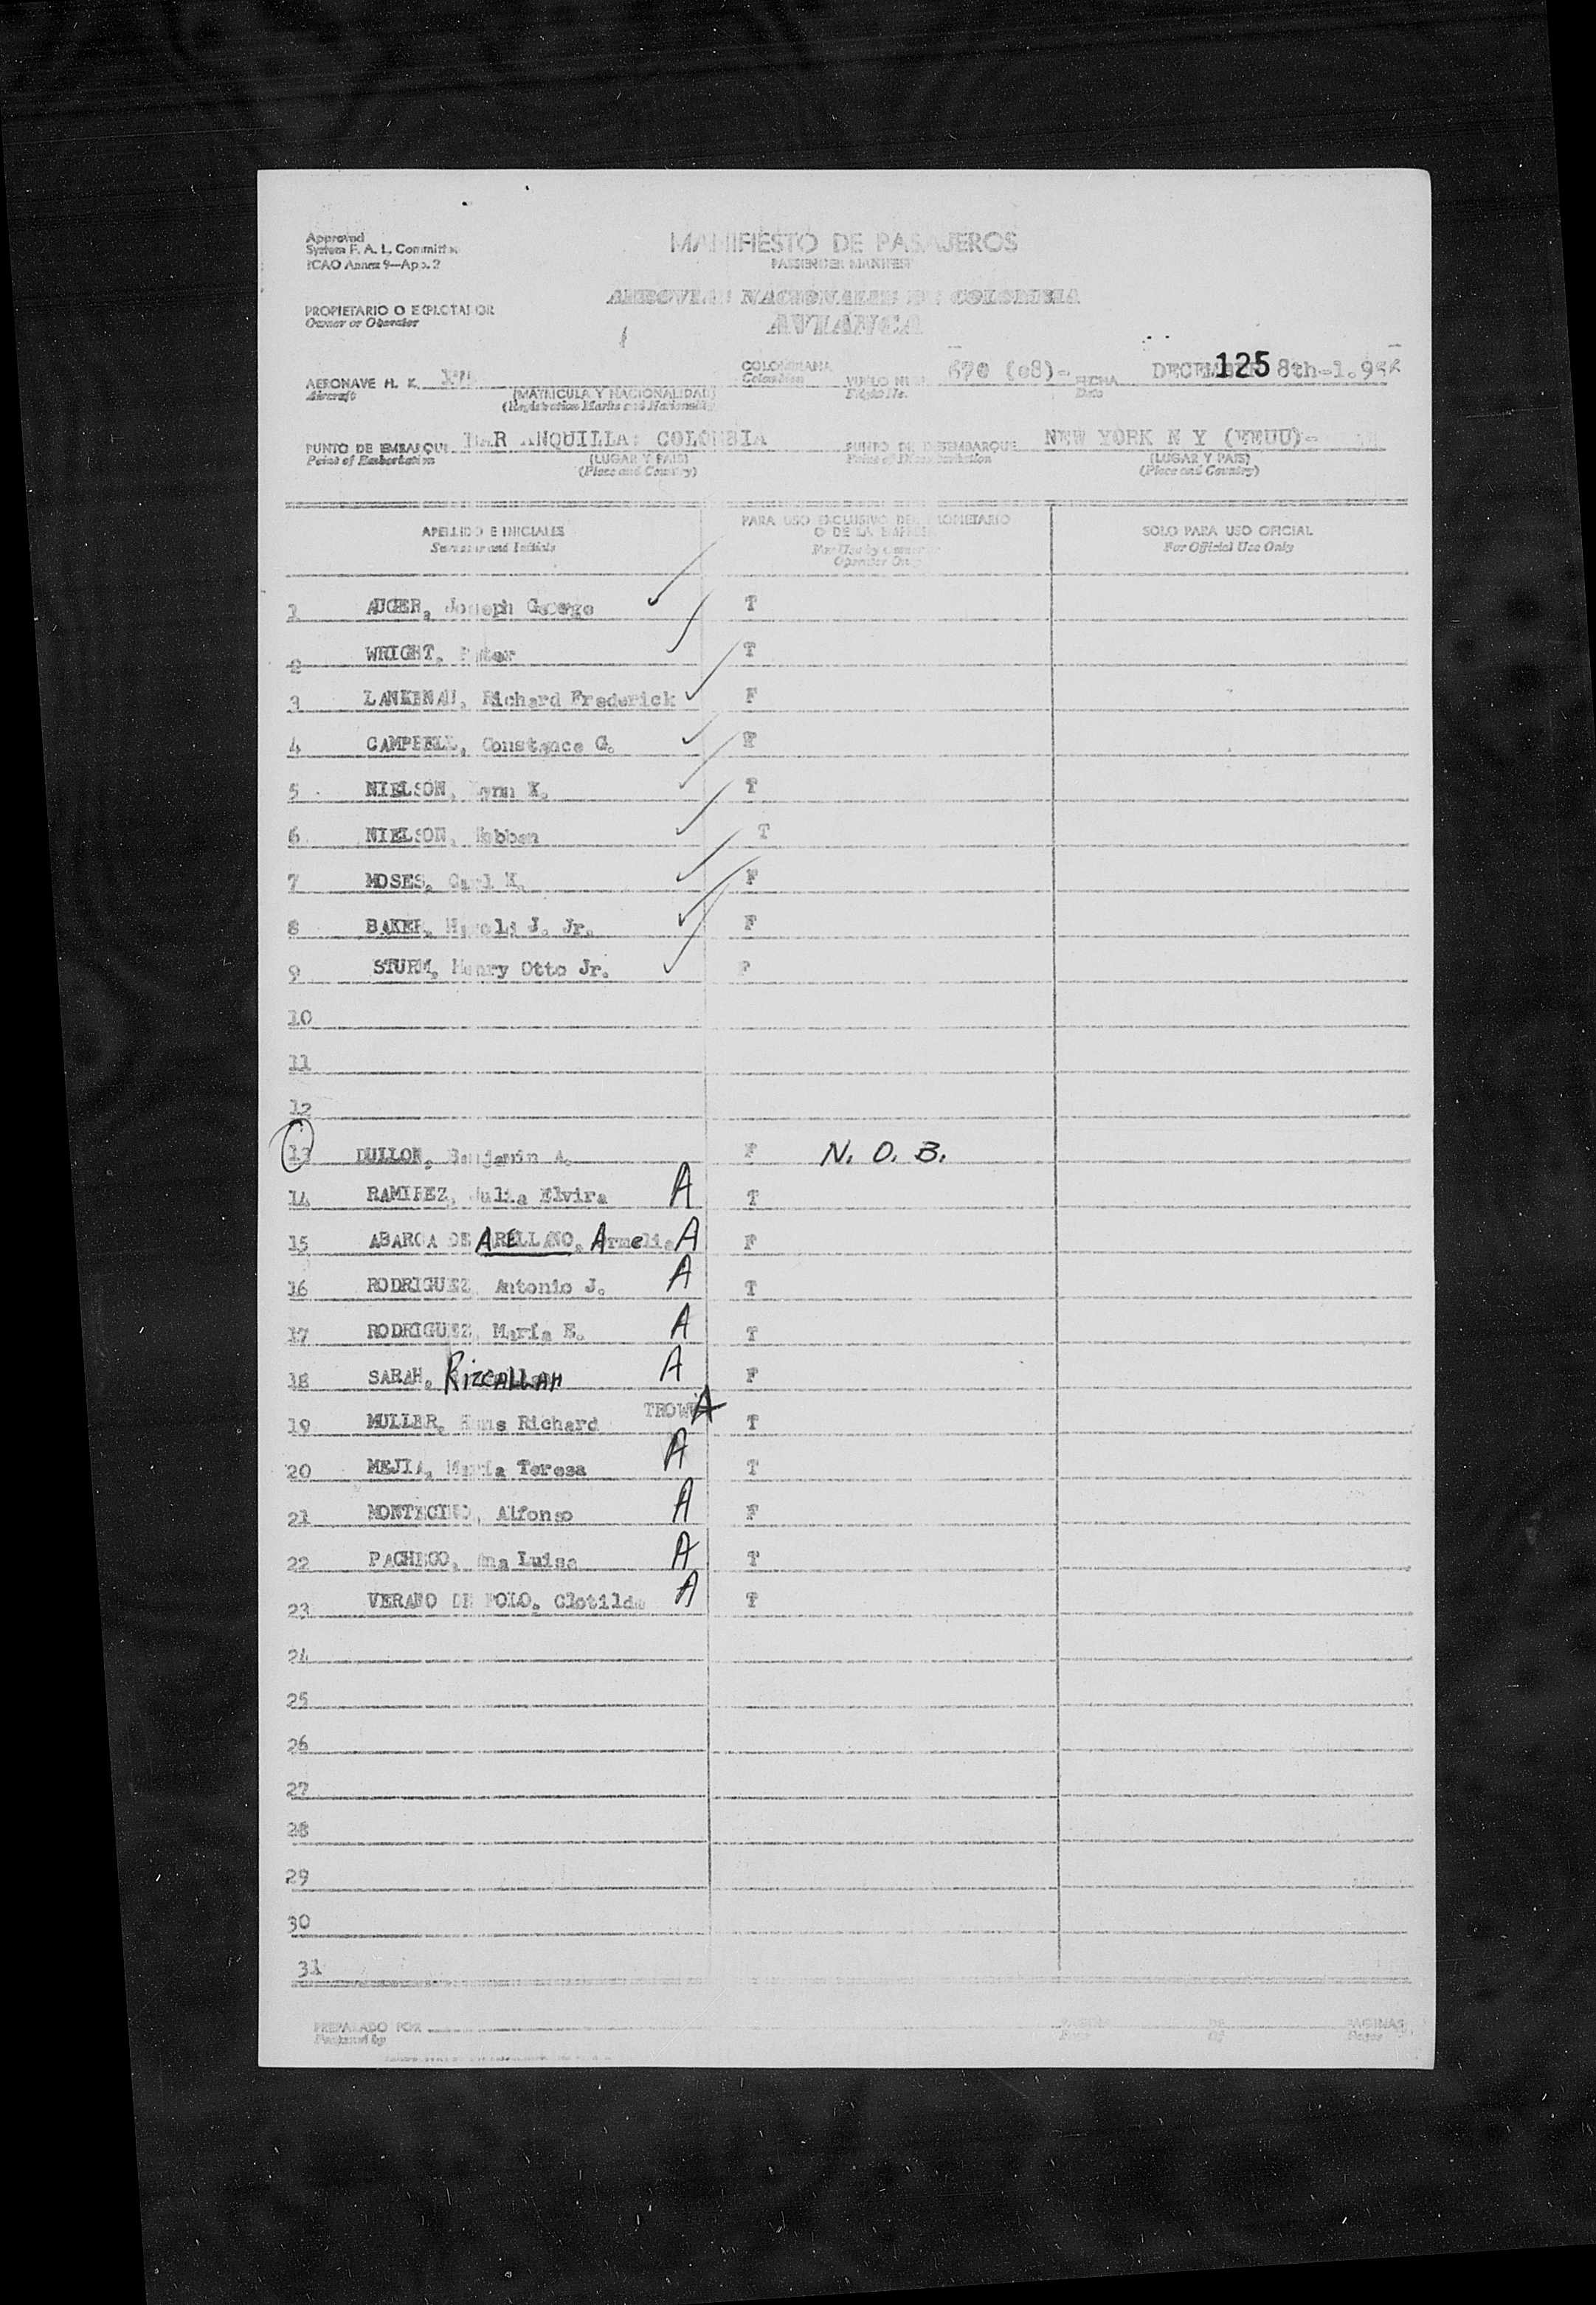 Approved
System F. A. L. Committee
ICAO Annex 9—App. 2
MANIFIESTO DE PASAJEROS
PASSENGER MANIFEST
AEROVIAS NACIONALES DE COLOMBIA
AVIANCA
PROPIETARIO O EXPLOTADOR
Owner or Operator
AERONAVE H. K.
Aircraft
(MATRICULA Y NACIONALIDAD)
(Registration Marks and Nationality)
COLOMBIANA
Colombian
VUELO Nº 670 (08)-
Flight No.
FECHA DECEMBER 8th-1.95
Date
125
PUNTO DE EMBARQUE BARRANQUILLA: COLOMBIA
Point of Embarkation
(LUGAR Y PAIS)
(Place and Country)
PUNTO DE DESEMBARQUE NEW YORK N Y (EEUU)-
Point of Disembarkation
(LUGAR Y PAIS)
(Place and Country)
APELLIDO E INICIALES
Surname and Initials
PARA USO EXCLUSIVO DEL PROPIETARIO
O DE LA EMPRESA
For Use by Owner or
Operator Only
SOLO PARA USO OFICIAL
For Official Use Only
1 AUGER, Joseph George T
2 WRIGHT, Peter T
3 LANKENAU, Richard Frederick F
4 CAMPBELL, Constance G. F
5 NIELSON, K. T
6 NIELSON, T
7 MOSES, Carl K. F
8 BAKER, Harold J. Jr. F
9 STURM, Henry Otto Jr. F
10
11
12
13 DULLON, Benjamin A. F N. O. B.
14 RAMIREZ, Julia Elvira A T
15 ABARCA DE ARELLANO, Armelia A F
16 RODRIGUEZ, Antonio J. A T
17 RODRIGUEZ, María E. A T
18 SARAH, RIZCALLAH A F
19 MULLER, Hans Richard A T
20 MEJIA, María Teresa A T
21 MONTECINO, Alfonso A F
22 PACHECO, Ana Luisa A T
23 VERANO DE POLO, Clotilde A T
24
25
26
27
28
29
30
31
PREPARADO POR
Prepared by
PAGINA
Page
DE
Of
PAGINAS
Pages